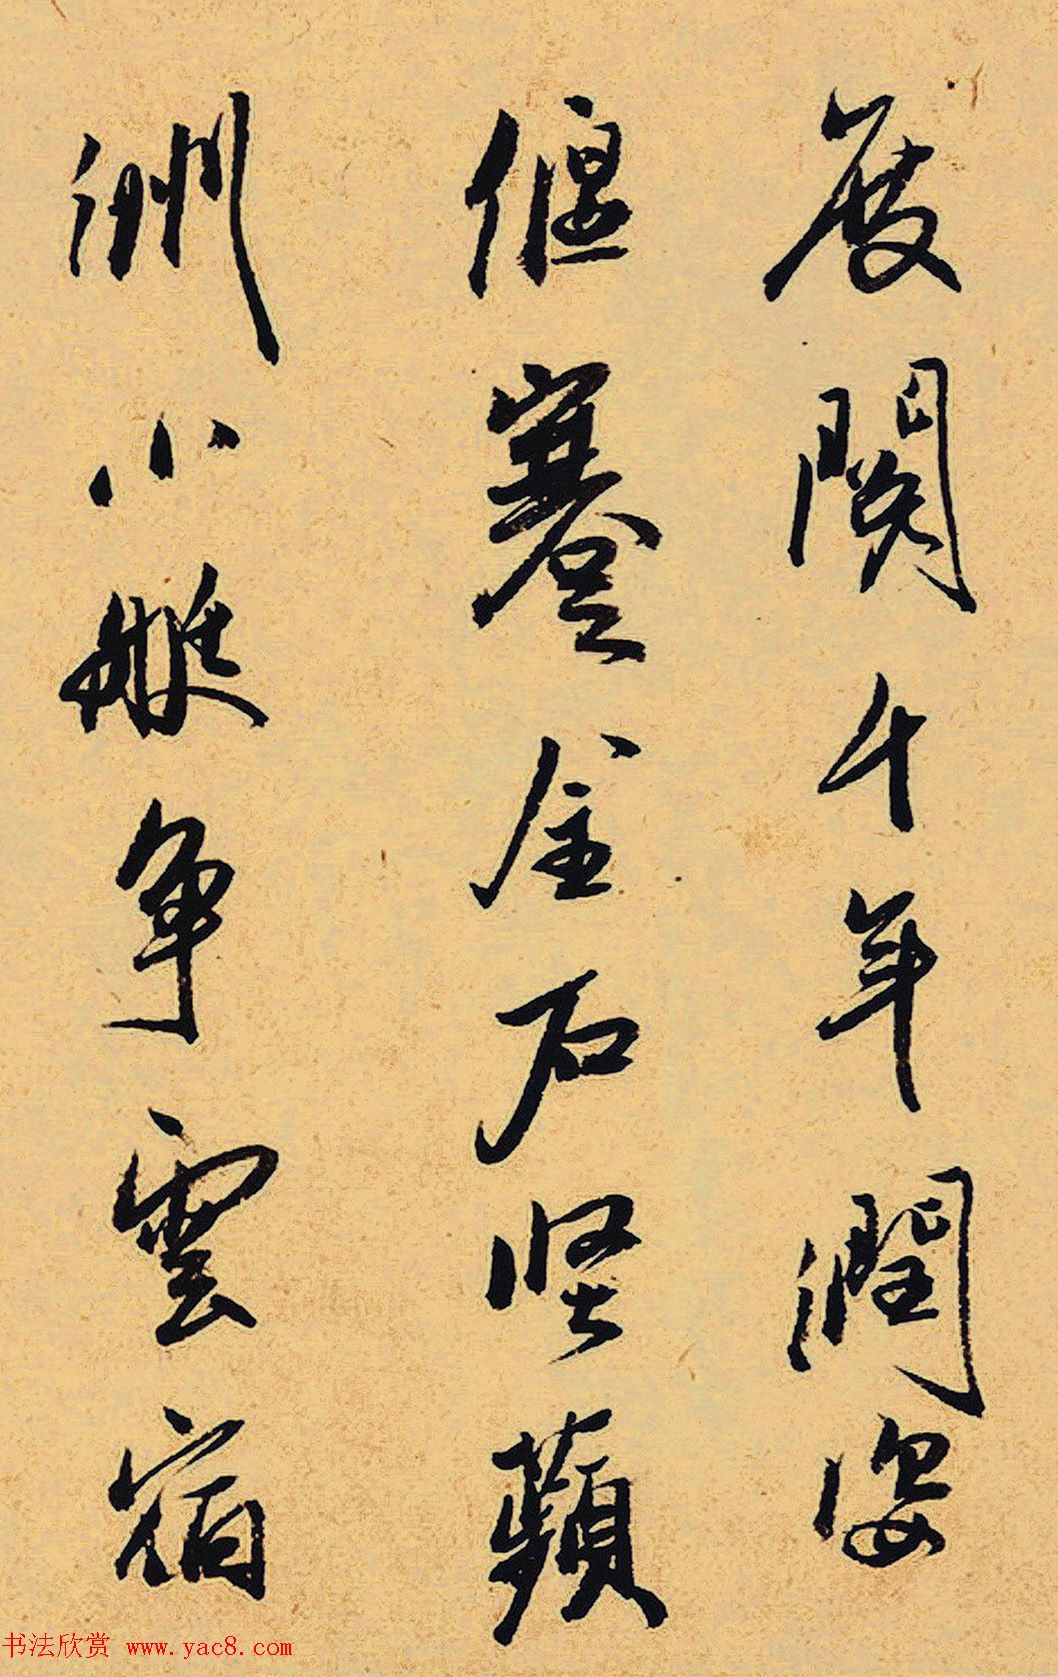 閱千年潤姿
偃蹇金石堅蘋
洲小艇爭雲宿
书法欣赏 www.yac8.com